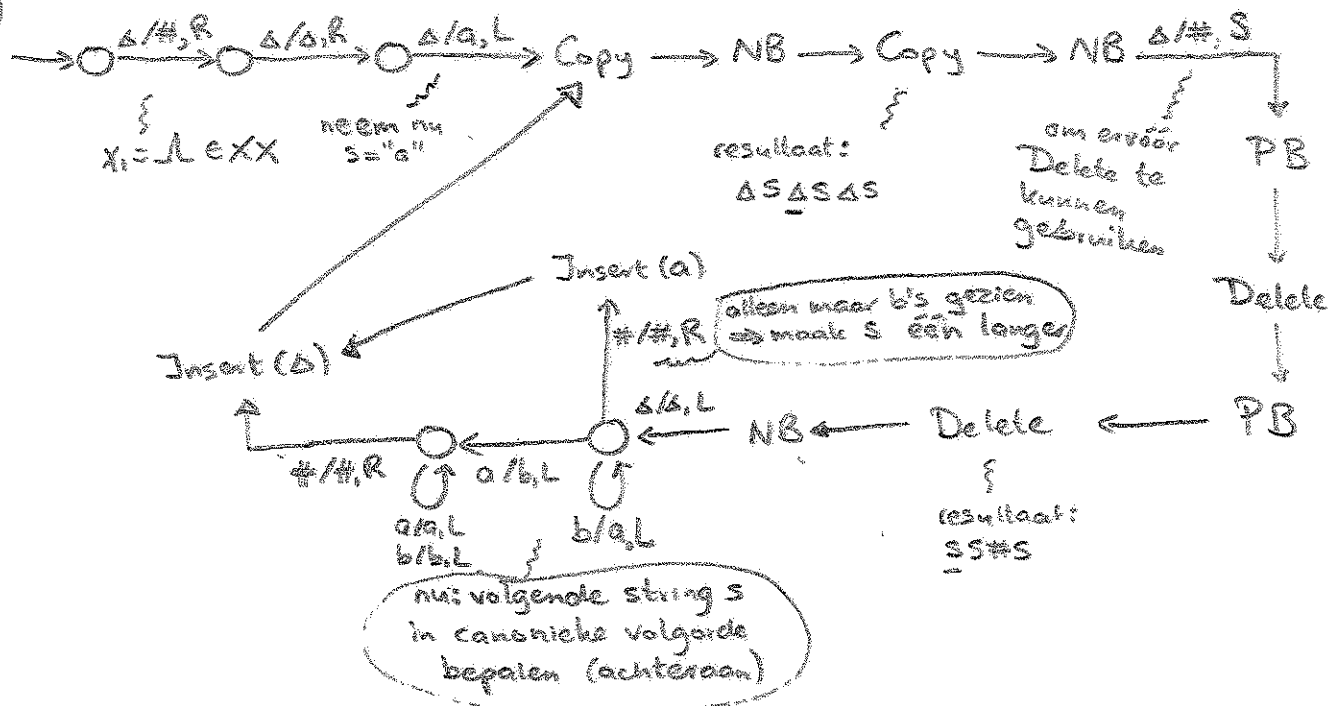 Δ/#,R Δ/Δ,R Δ/a,L Copy → NB → Copy → NB Δ/#,S
x₁ = Λ ∈ XX
neem nu
s="a"
resultaat:
ΔSΔSΔS
om ervóór
Delete te
kunnen
gebruiken
PB
Delete
PB
Insert (a)
#/#,R
alleen maar b's gezien
⇒ maak s één langer
Insert (Δ)
Δ/Δ,L NB Delete
#/#,R a/b,L
a/a,L
b/b,L
b/a,L
resultaat:
SS#S
nu: volgende string s
in canonieke volgorde
bepalen (achteraan)